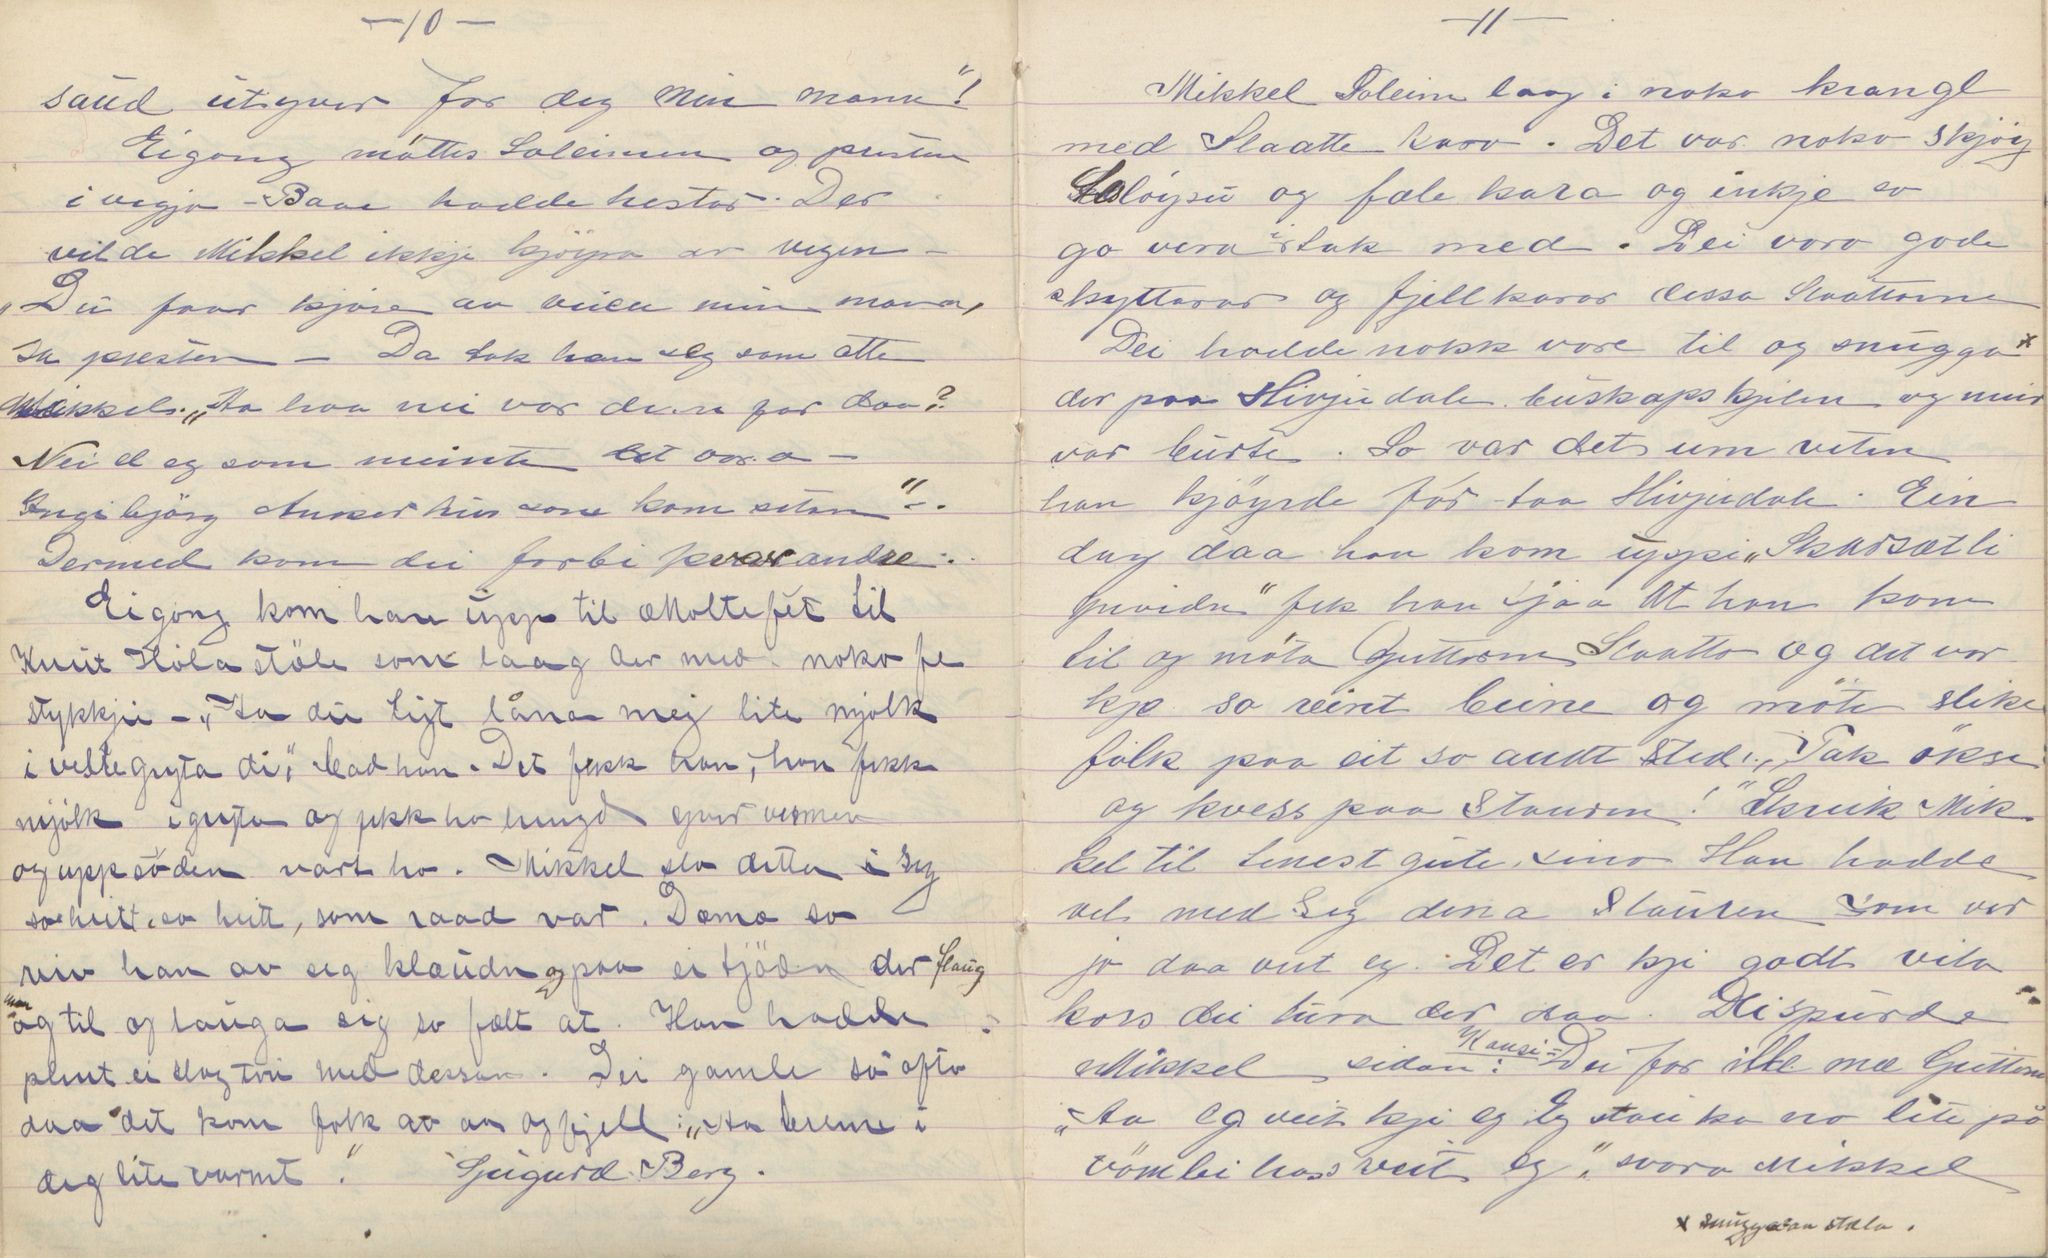 —10—
saud utyver for deg min mann"!
Eigong møttes Soleimen og presten
i vegjo – Baae hadde hestar. Der
vilde Mikkel ikkje kjöyra av vegen –
"Du faar kjøre av veien min mann,
sa presten – Da tok han seg som atte
Mikkel. "Aa haa nei var den far daa?
Nei d eg som meinte det var a –
Ingebjörg Ankerhus som kom utan" –.
Dermed kom dei forbi kvarandre.
Eigong kom han upp til Moltefét til
Knut Hóla støle som laag der med noko fe
stykkji – "Ja du ligt låna meg lite mjølk
i veltegryta di", bad han. Det fekk han, han fekk
mjölk i gryta og fekk ho hengd yver varmen
og uppsöden vart ho. Mikkel slo detta i seg
so heitt, so heitt, som raad var. Dæmæ so
reiv han av seg klæudn og paa ei tjödn der flaug
han
og til og lauga sig so fælt at. Han hadde
plent ei slag tru med dessan. Dei gamle sa ofto
daa det kom folk av aa og fjell: "Aa leeme i
deg lite varmt". Sjugurd Berg.
—11—
Mikkel Soleim laag i noko krangl
med Slaatte karo. Det var noko skjøy
løysu og fæle kara og inkje so
go vera i stak med. Dei voro gode
skyttarar og fjellkarar dessa Slaattarne
Dei hadde nokk vore til og snugga x
der paa Hivjudale buskapskjilen og meir
var burte. So var det um veten
han kjöyrde fór taa Hivjudale. Ein
dag daa han kom uppi "Skarsætli
gvidn" fek han sjaa at han kom
til og møta Guttorm Slaatto og det var
kje so reint beine og möte slike
fólk paa eit so audt sted. "Tak økse
og kvess paa Stauren!" Skreik Mik-
kel til tenestgute sino Han hadde
vel med seg denna Stauren som var
jo daa aut eg. Det er kji godt vita
kors dei tura der daa. Dei spurde
Mikkel sidan: Kansi = Du for ille mæ Guttorm
"Aa eg veit kji eg Eg stauka no lite på
vömbi hass veit eg", svara Mikkel
x snugga = aa stæla.